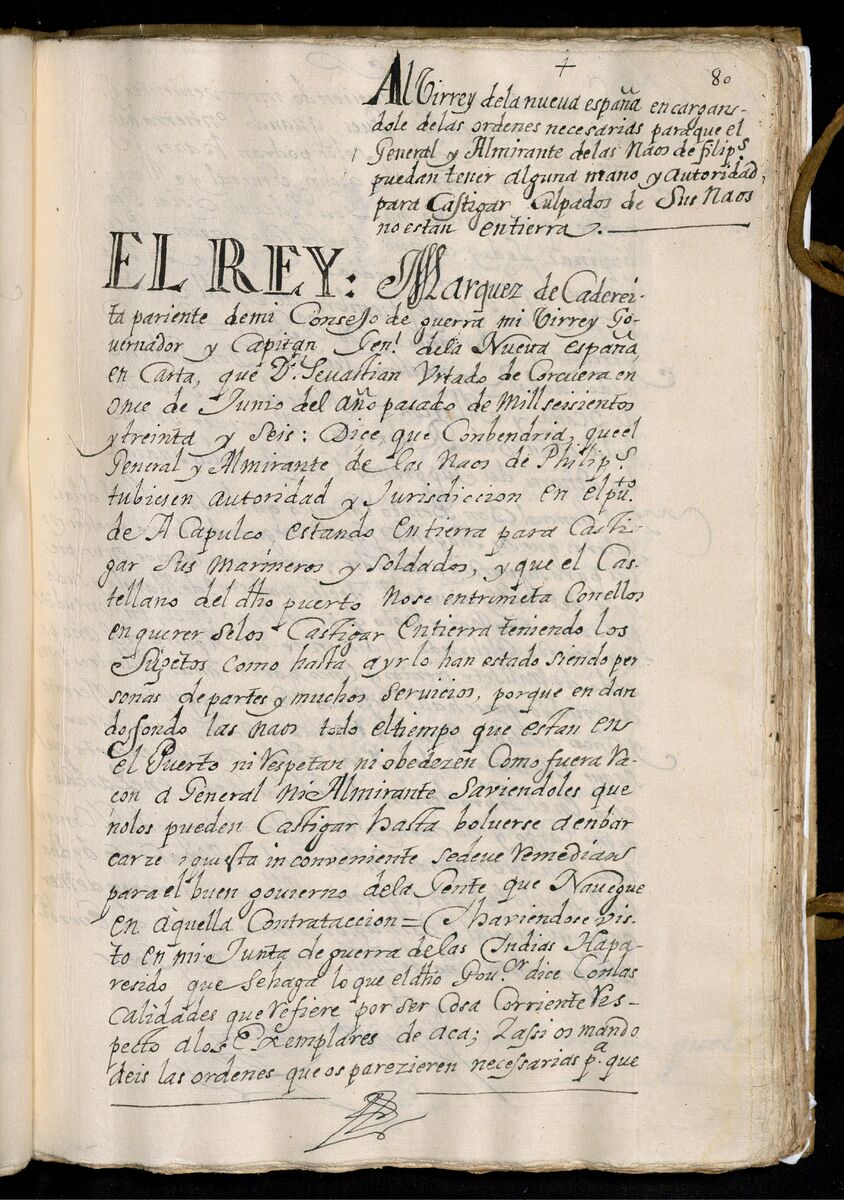 +
80
Al Virrey dela nueva españa encargan-
dole delas ordenes necesarias paraque el
General y Almirante delas Naos de filips.
puedan tener alguna mano y autoridad,
para Castigar Culpados de Sus Naos
no estan entierra.
EL REY: Marquez de Caderei-
ta pariente demi Consejo de guerra mi Virrey Go-
vernador y Capitan Genl. dela Nueva españa
en Carta, que Dn. Sevastian Vrtado de Corcuera en
once de Junio del año pasado de Mill seisientos
y treinta y Seis: Dice, que Conbendria, que el
General y Almirante de las Naos de Philips.
tubiesen autoridad y Jurisdiccion en el pto.
de Acapulco estando entierra para Casti-
gar Sus marineros y soldados, y que el Cas-
tellano del dho puerto Nose entrimeta Conellos
enquerer selos Castigar entierra teniendo los
Sugetos como hasta ayrlo han estado siendo per
sonas departes y muchos servicios, porque en dan
dofondo las naos todo eltiempo que estan en
el Puerto ni respetan ni obedezen Como fuera ra-
con a General Ni Almirante Saviendoles que
nolos pueden Castigar hasta boluerse aenbar
carze, y questa inconveniente sedeve remediar
para el buen govierno dela Gente que Navegue
en aquella Contrataccion = Y haviendose vis-
to en mi Junta de guerra delas Indias Hapa-
resido que sehaga lo que el dho Gouor. dice Conlas
Calidades que refiere por ser Cosa Corriente res-
pecto alos Exemplares de aca; Zassi os mando
deis las ordenes que os parezieren necessarias pa. que